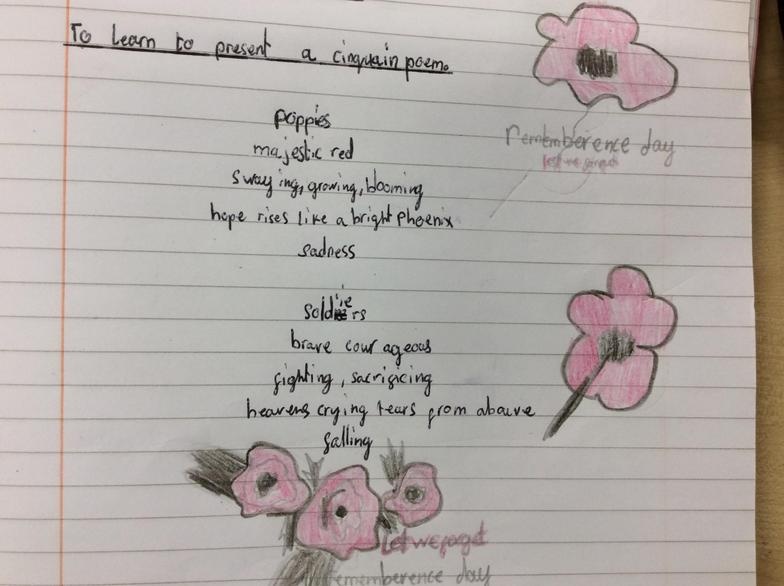 To learn to present a cinquain poem.
poppies
majestic red
swaying, growing, blooming
hope rises like a bright phoenix
sadness
soldiers
brave courageous
fighting, sacrificing
heavens crying tears from abouve
falling
rememberence day
lest we forget
Let we forget
rememberence day